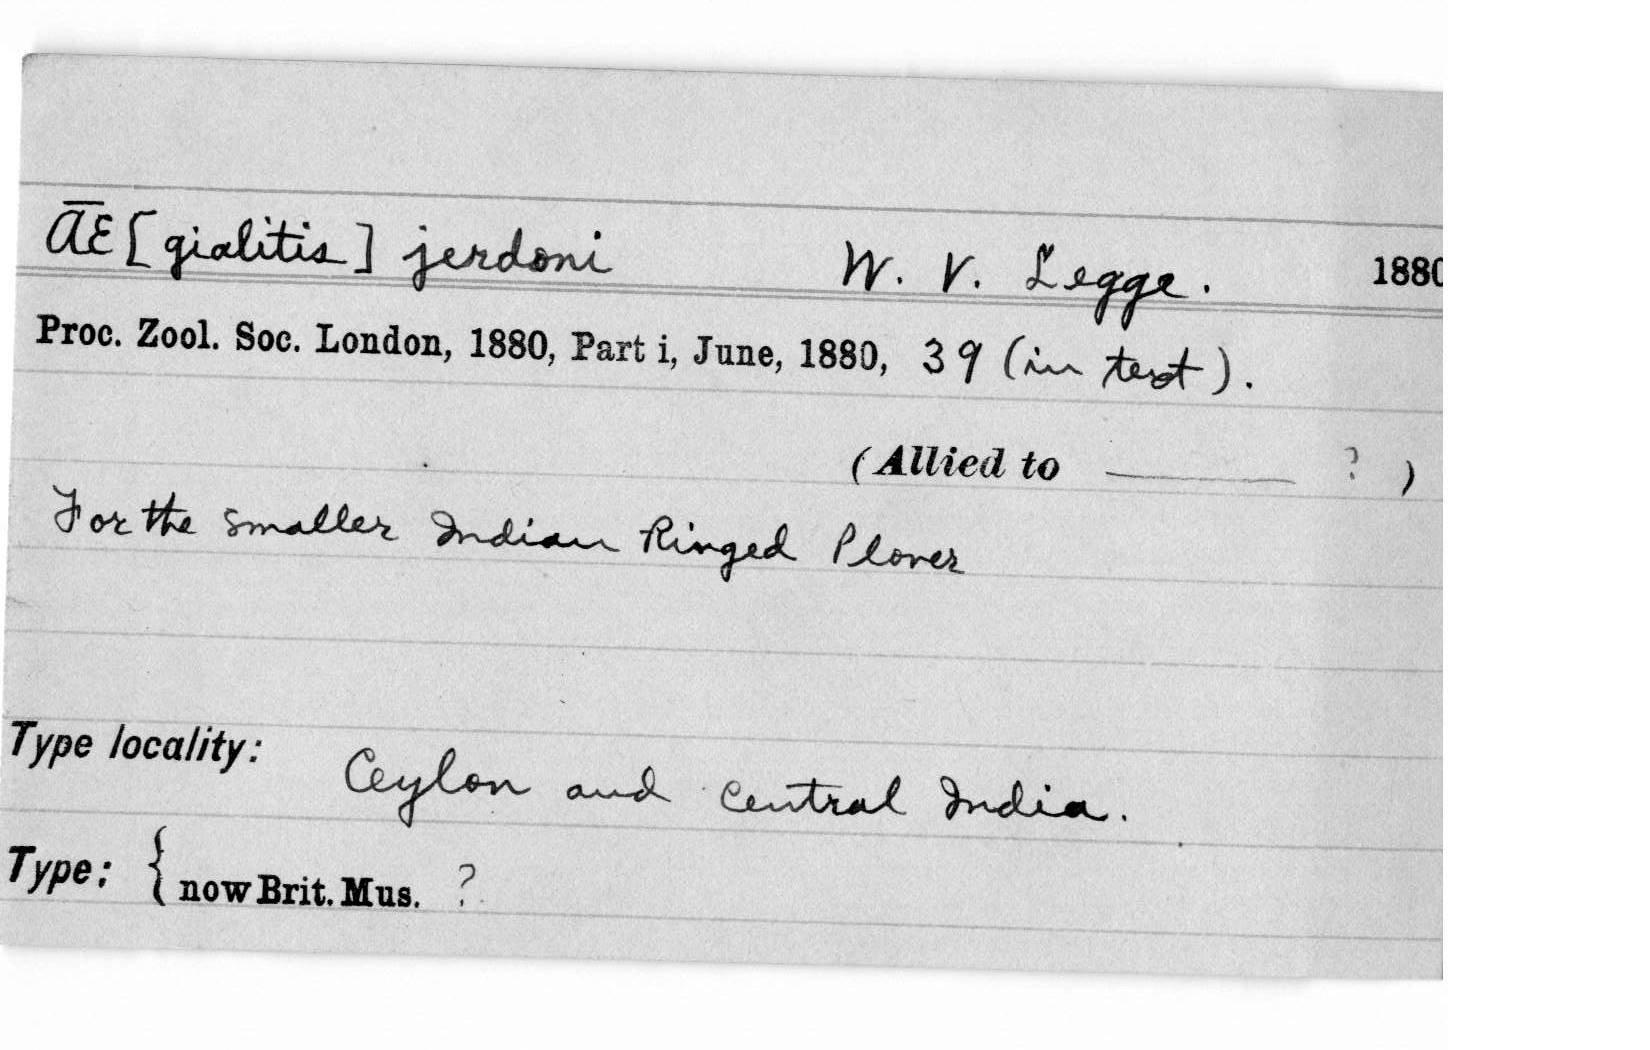 Æ[gialitis] jerdoni W. V. Legge. 1880
Proc. Zool. Soc. London, 1880, Part i, June, 1880, 39 (in text).
(Allied to ______ ? )
For the smaller Indian Ringed Plover
Type locality: Ceylon and central India.
Type: { now Brit. Mus. ?